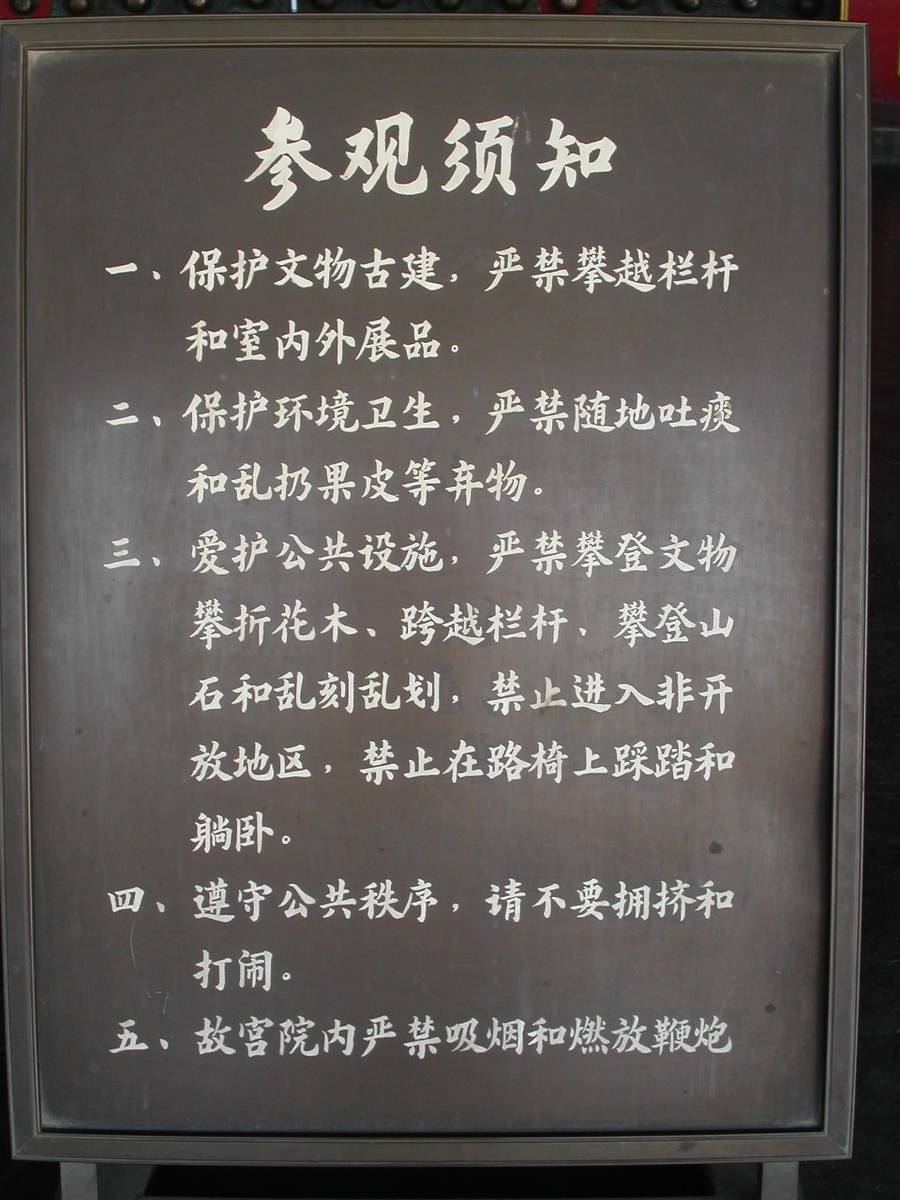 参观须知
一、保护文物古建，严禁攀越栏杆
和室内外展品。
二、保护环境卫生，严禁随地吐痰
和乱扔果皮等弃物。
三、爱护公共设施，严禁攀登文物
攀折花木、跨越栏杆、攀登山
石和乱刻乱划，禁止进入非开
放地区，禁止在路椅上踩踏和
躺卧。
四、遵守公共秩序，请不要拥挤和
打闹。
五、故宫院内严禁吸烟和燃放鞭炮